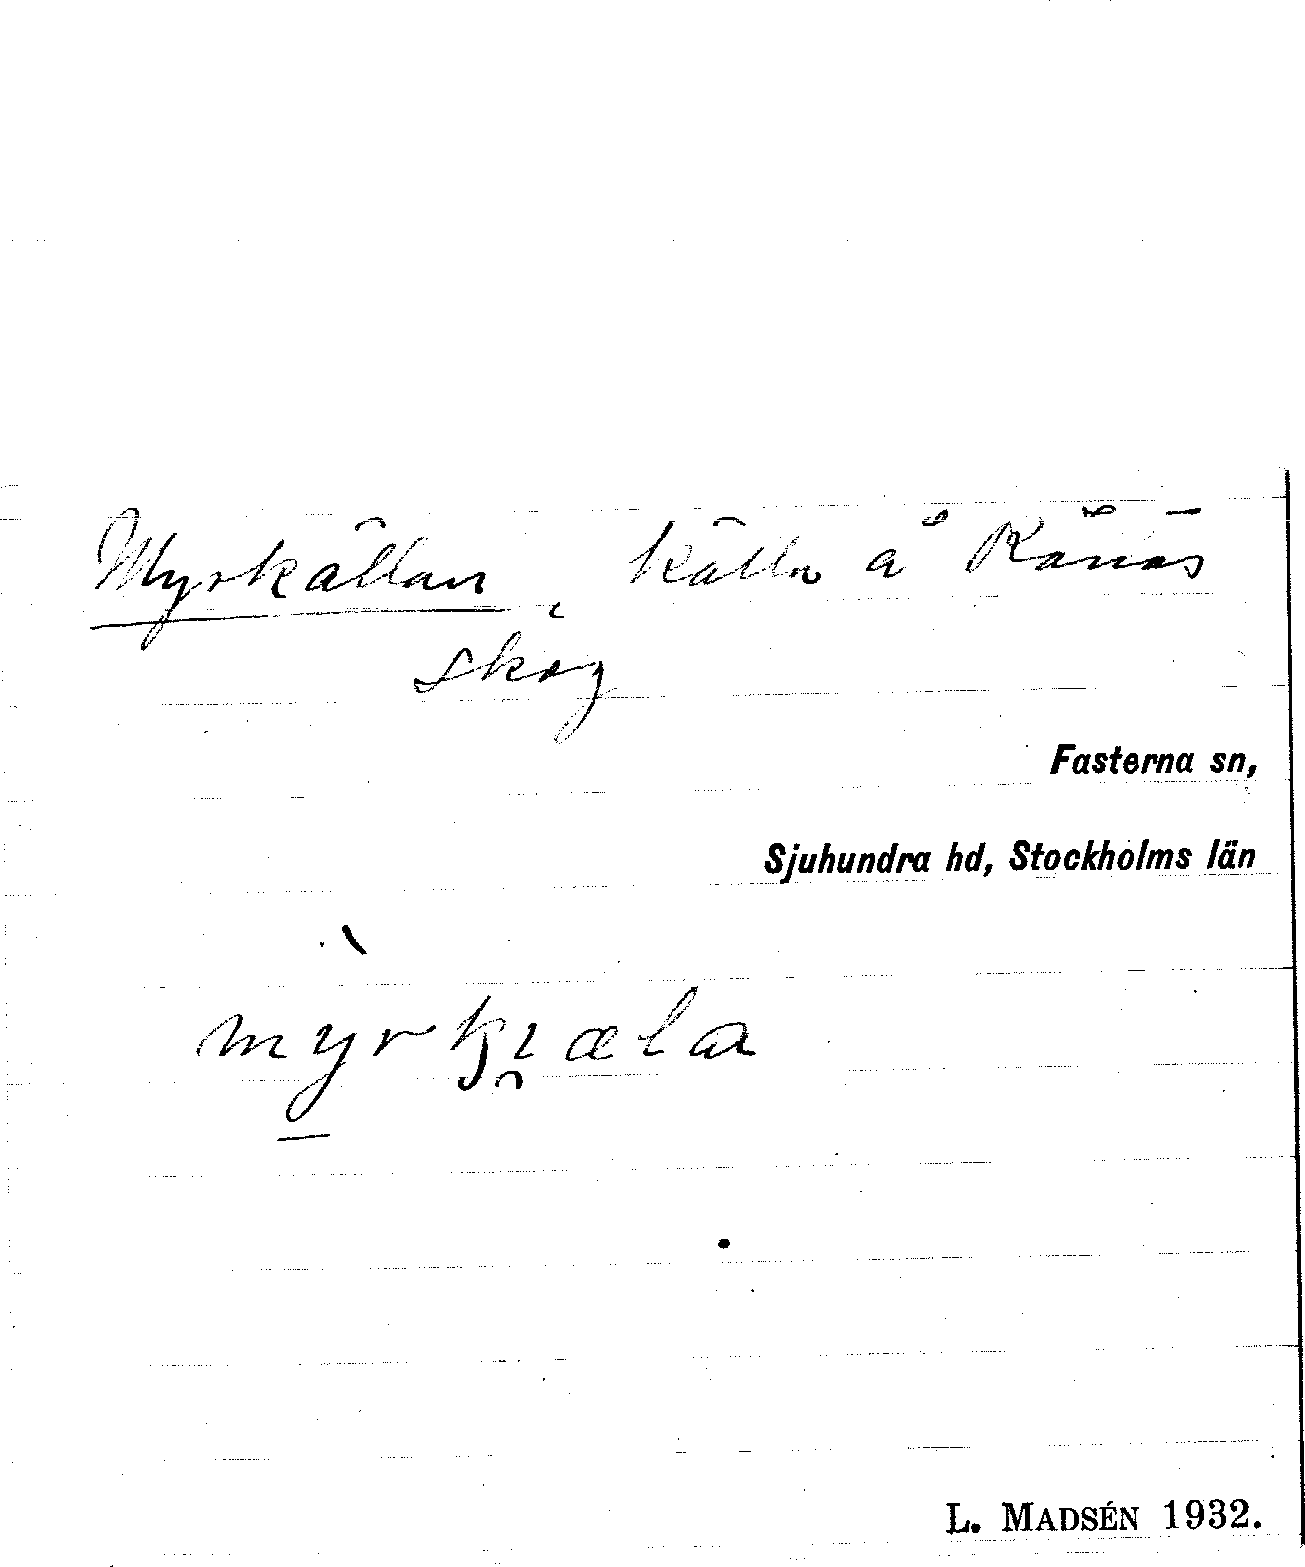 Myrkällan, källa å Rånäs
skog
Fasterna sn,
Sjuhundra hd, Stockholms län
L. MADSÉN 1932.